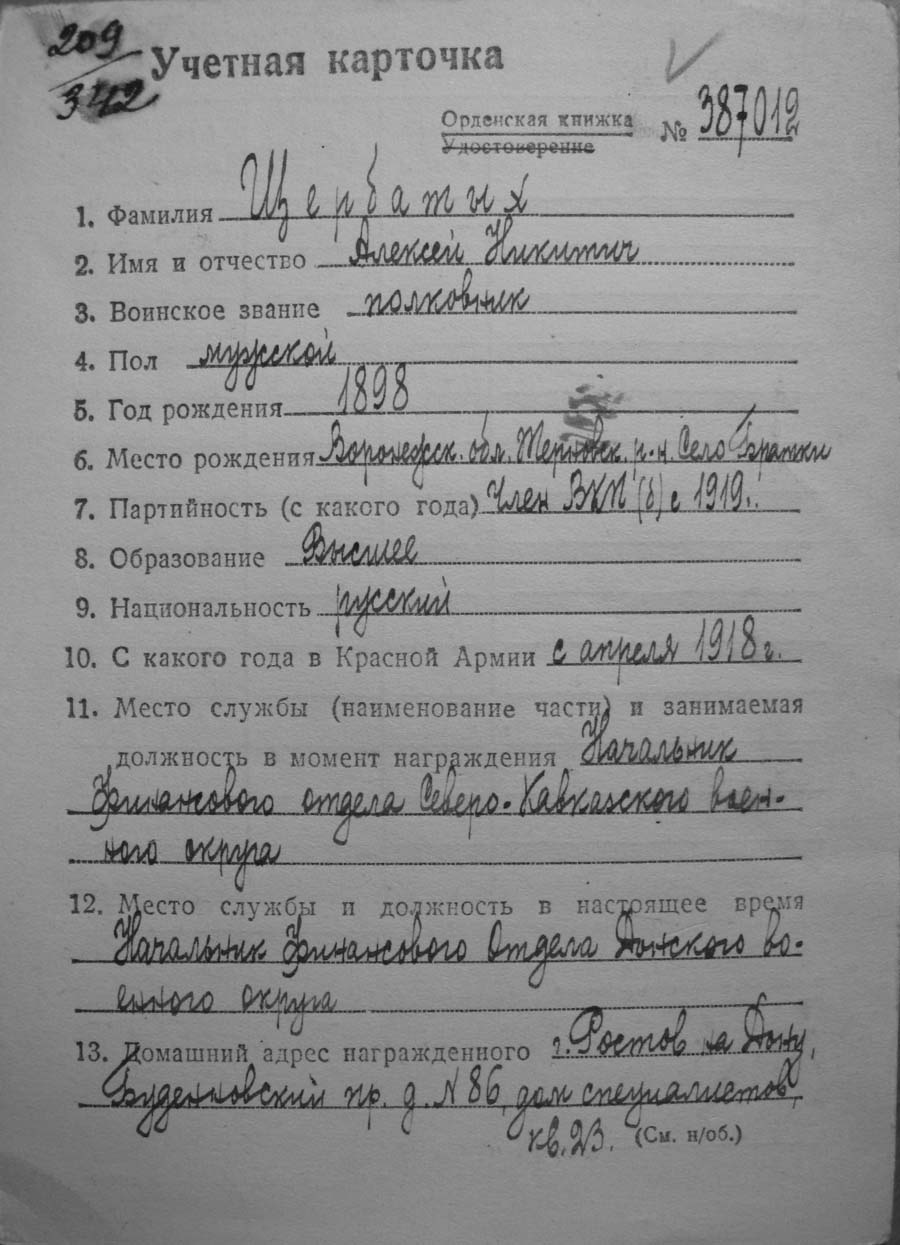 209
342
Учетная карточка
Орденская книжка № 387012
Удостоверение
1. Фамилия Щербатых
2. Имя и отчество Алексей Никитич
3. Воинское звание полковник
4. Пол мужской
5. Год рождения 1898
6. Место рождения Воронежск. обл. Терновск. р-н. Село Братки
7. Партийность (с какого года) Член ВКП(б) с 1919г.
8. Образование Высшее
9. Национальность русский
10. С какого года в Красной Армии с апреля 1918г.
11. Место службы (наименование части) и занимаемая
должность в момент награждения Начальник
Финансового отдела Северо-Кавказского воен-
ного округа
12. Место службы и должность в настоящее время
Начальник Финансового Отдела Донского во-
енного округа
13. Домашний адрес награжденного г. Ростов на Дону,
Буденновский пр. д. N 86, дом специалистов,
кв. 23. (См. н/об.)